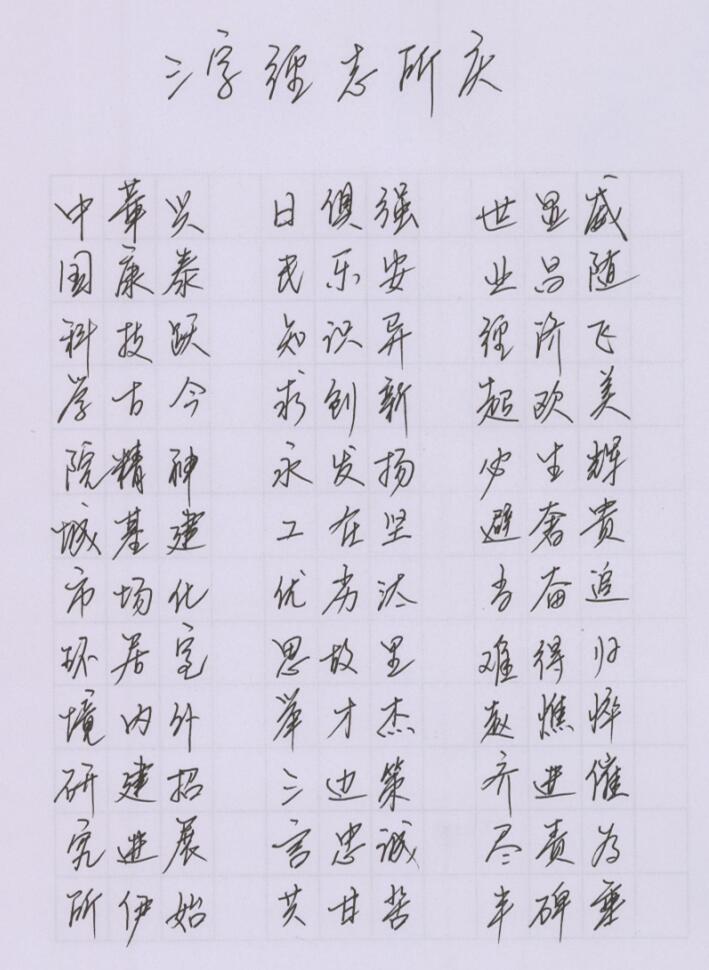 三字经志所庆
中華兴 日俱强 世显威
国康泰 民乐安 业昌随
科技跃 知识异 经济飞
学古今 求创新 超欧美
院精神 永发扬 必生辉
城基建 工在坚 避奢贵
市场化 优劣汰 当奋追
环居室 思故里 难得归
境内外 举才杰 赵憔悴
研建招 三边策 齐进催
究进展 言忠诚 尽责为
所伊始 共甘苦 丰碑垂